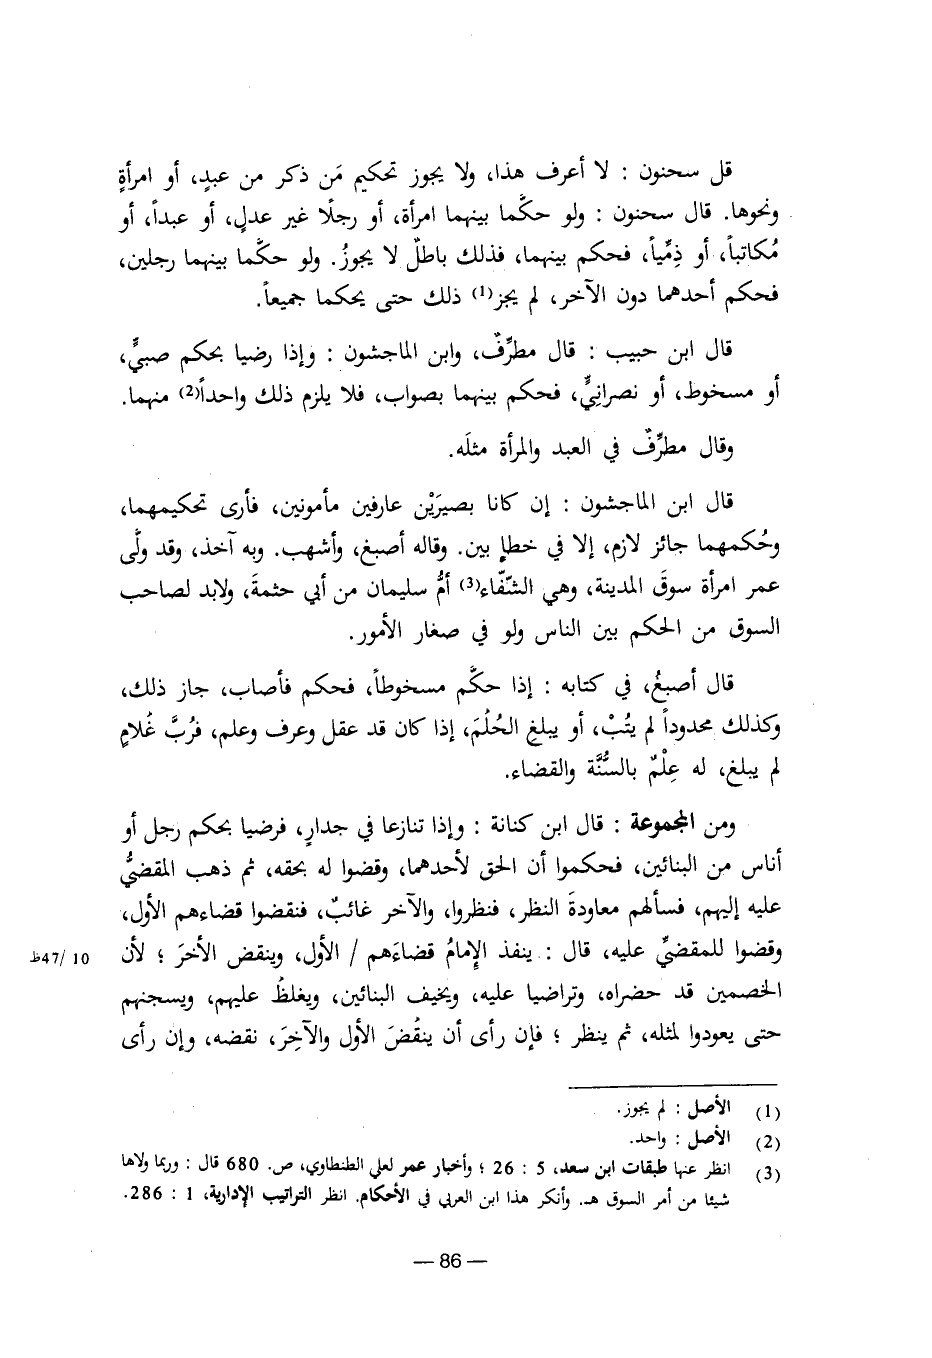 قل سحنون : لا أعرف هذا، ولا يجوز تحكيم مَن ذكر من عبدٍ، أو امرأةٍ
ونحوها. قال سحنون : ولو حكَّما بينهما امرأة، أو رجلًا غير عدلٍ، أو عبداً، أو
مُكاتباً، أو ذِمِّياً، فحكم بينهما، فذلك باطلٌ لا يجوزُ. ولو حكَّما بينهما رجلين،
فحكم أحدهما دون الآخر، لم يجز(1) ذلك حتى يحكما جميعاً.
قال ابن حبيب : قال مطرِّفٌ، وابن الماجشون : وإذا رضيا بحكم صبيٍّ،
أو مسخوط، أو نصرانِيٍّ، فحكم بينهما بصواب، فلا يلزم ذلك واحداً(2) منهما.
وقال مطرِّفٌ في العبد والمرأة مثلَه.
قال ابن الماجشون : إن كانا بصيرَيْن عارفين مأمونين، فأرى تحكيمهما،
وحُكمهما جائز لازم، إلا في خطإٍ بين. وقاله أصبغ، وأشهب. وبه آخذ، وقد ولَّى
عمر امرأة سوقَ المدينة، وهي الشِّفَّاء(3) أمُّ سليمان من أبي حثمةَ، ولابد لصاحب
السوق من الحكم بين الناس ولو في صغار الأمور.
قال أصبغُ، في كتابه : إذا حكَّم مسخوطاً، فحكم فأصاب، جاز ذلك،
وكذلك محدوداً لم يتُبْ، أو يبلغِ الحُلُمَ، إذا كان قد عقل وعرف وعلم، فرُبَّ غُلامٍ
لم يبلغ، له عِلْمٌ بالسُّنَّة والقضاء.
ومن المجموعة : قال ابن كنانة : وإذا تنازعا في جدارٍ، فرضيا بحكم رجل أو
أناس من البنائين، فحكموا أن الحق لأحدهما، وقضوا له بحقه، ثم ذهب المقضيُّ
عليه إليهم، فسألهم معاودةَ النظر، فنظروا، والآخر غائبٌ، فنقضوا قضاءهم الأول،
وقضوا للمقضيِّ عليه، قال : ينفذ الإمامُ قضاءَهم / الأول، وينقض الأخرَ ؛ لأن
10 /47ظ
الخصمين قد حضراه، وتراضيا عليه، ويخيف البنائين، ويغلظُ عليهم، ويسجنهم
حتى يعودوا لمثله، ثم ينظر ؛ فإن رأى أن ينقُضَ الأول والآخِرَ، نقضه، وإن رأى
(1) الأصل : لم يجوز.
(2) الأصل : واحد.
(3) انظر عنها طبقات ابن سعد، 5 : 26 ؛ وأخبار عمر لعلي الطنطاوي، ص. 680 قال : وربما ولاها
شيئا من أمر السوق هـ. وأنكر هذا ابن العربي في الأحكام. انظر التراتيب الإدارية، 1 : 286.
— 86 —